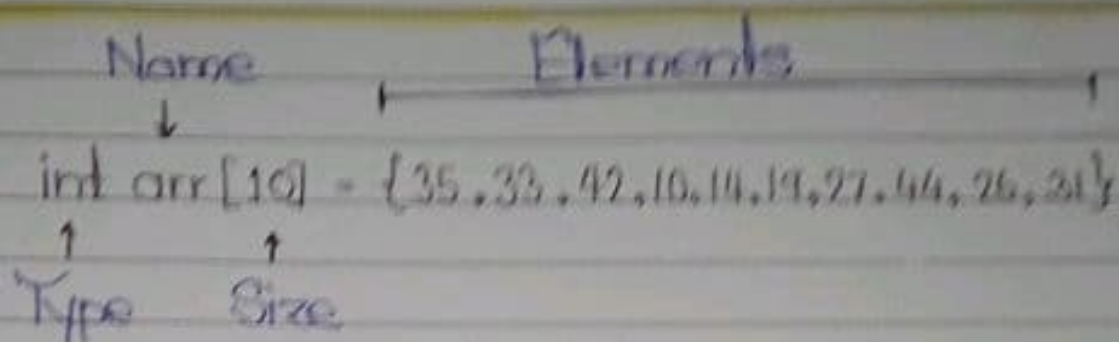 Name Elements
int arr [10] = {35, 33, 42, 10, 14, 19, 27, 44, 26, 31}
Type Size